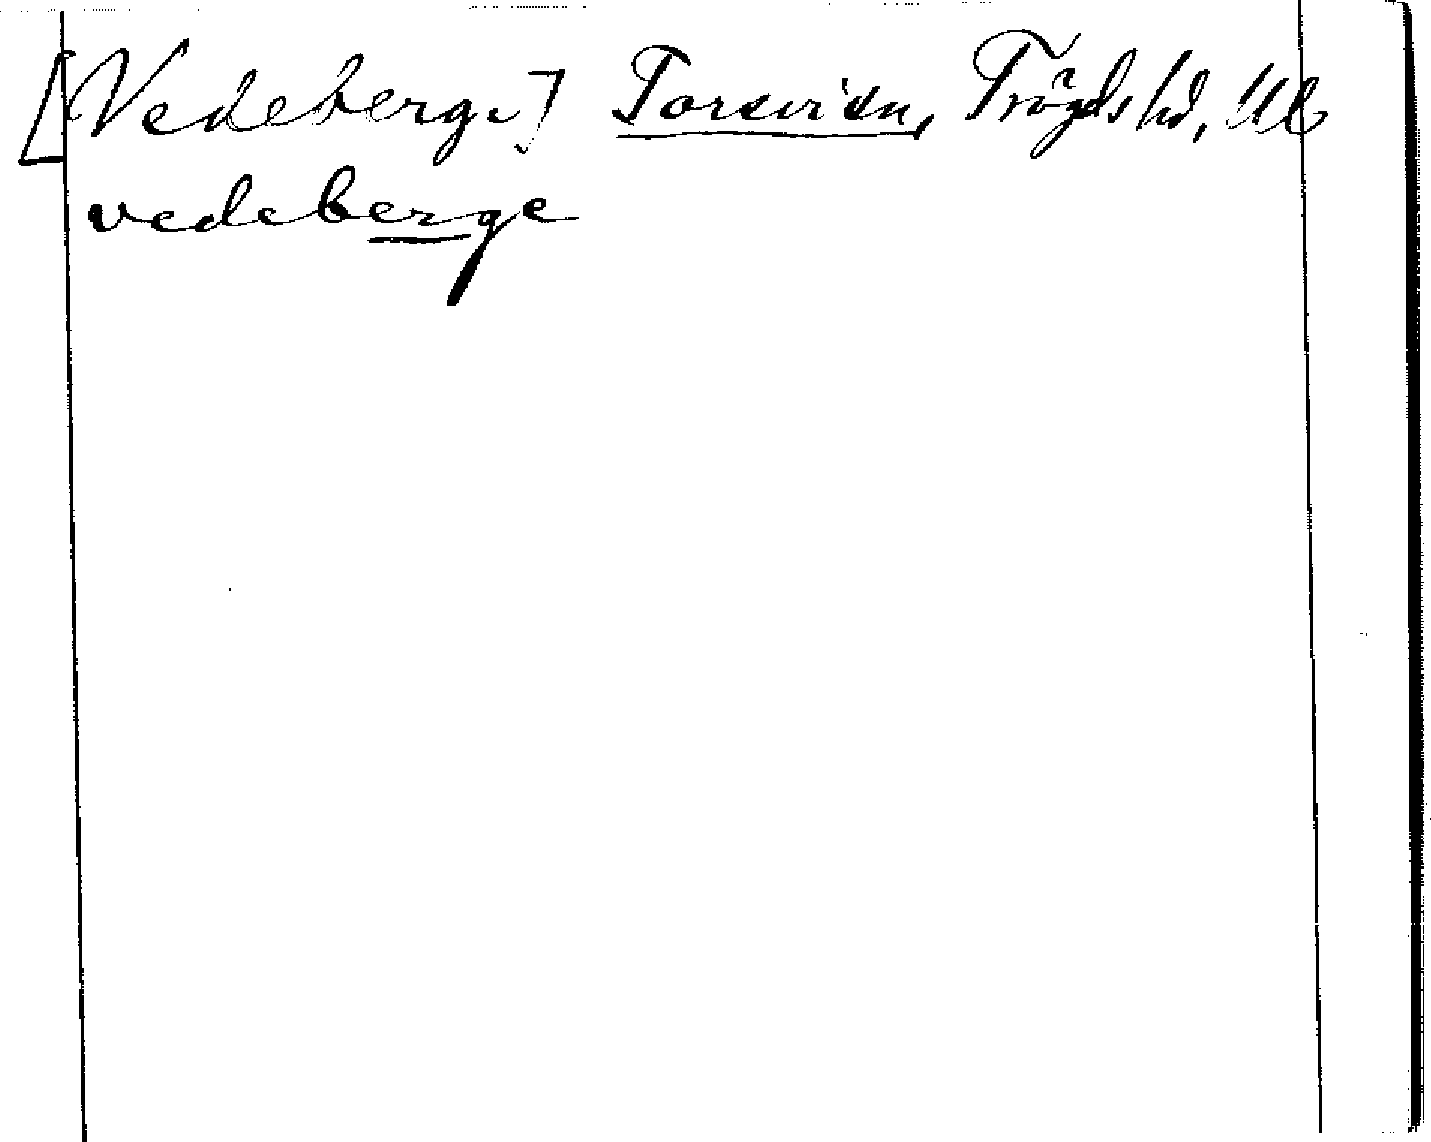 [Vedeberge] Torsvi sn, Trögds hd, Ul
vedeberge